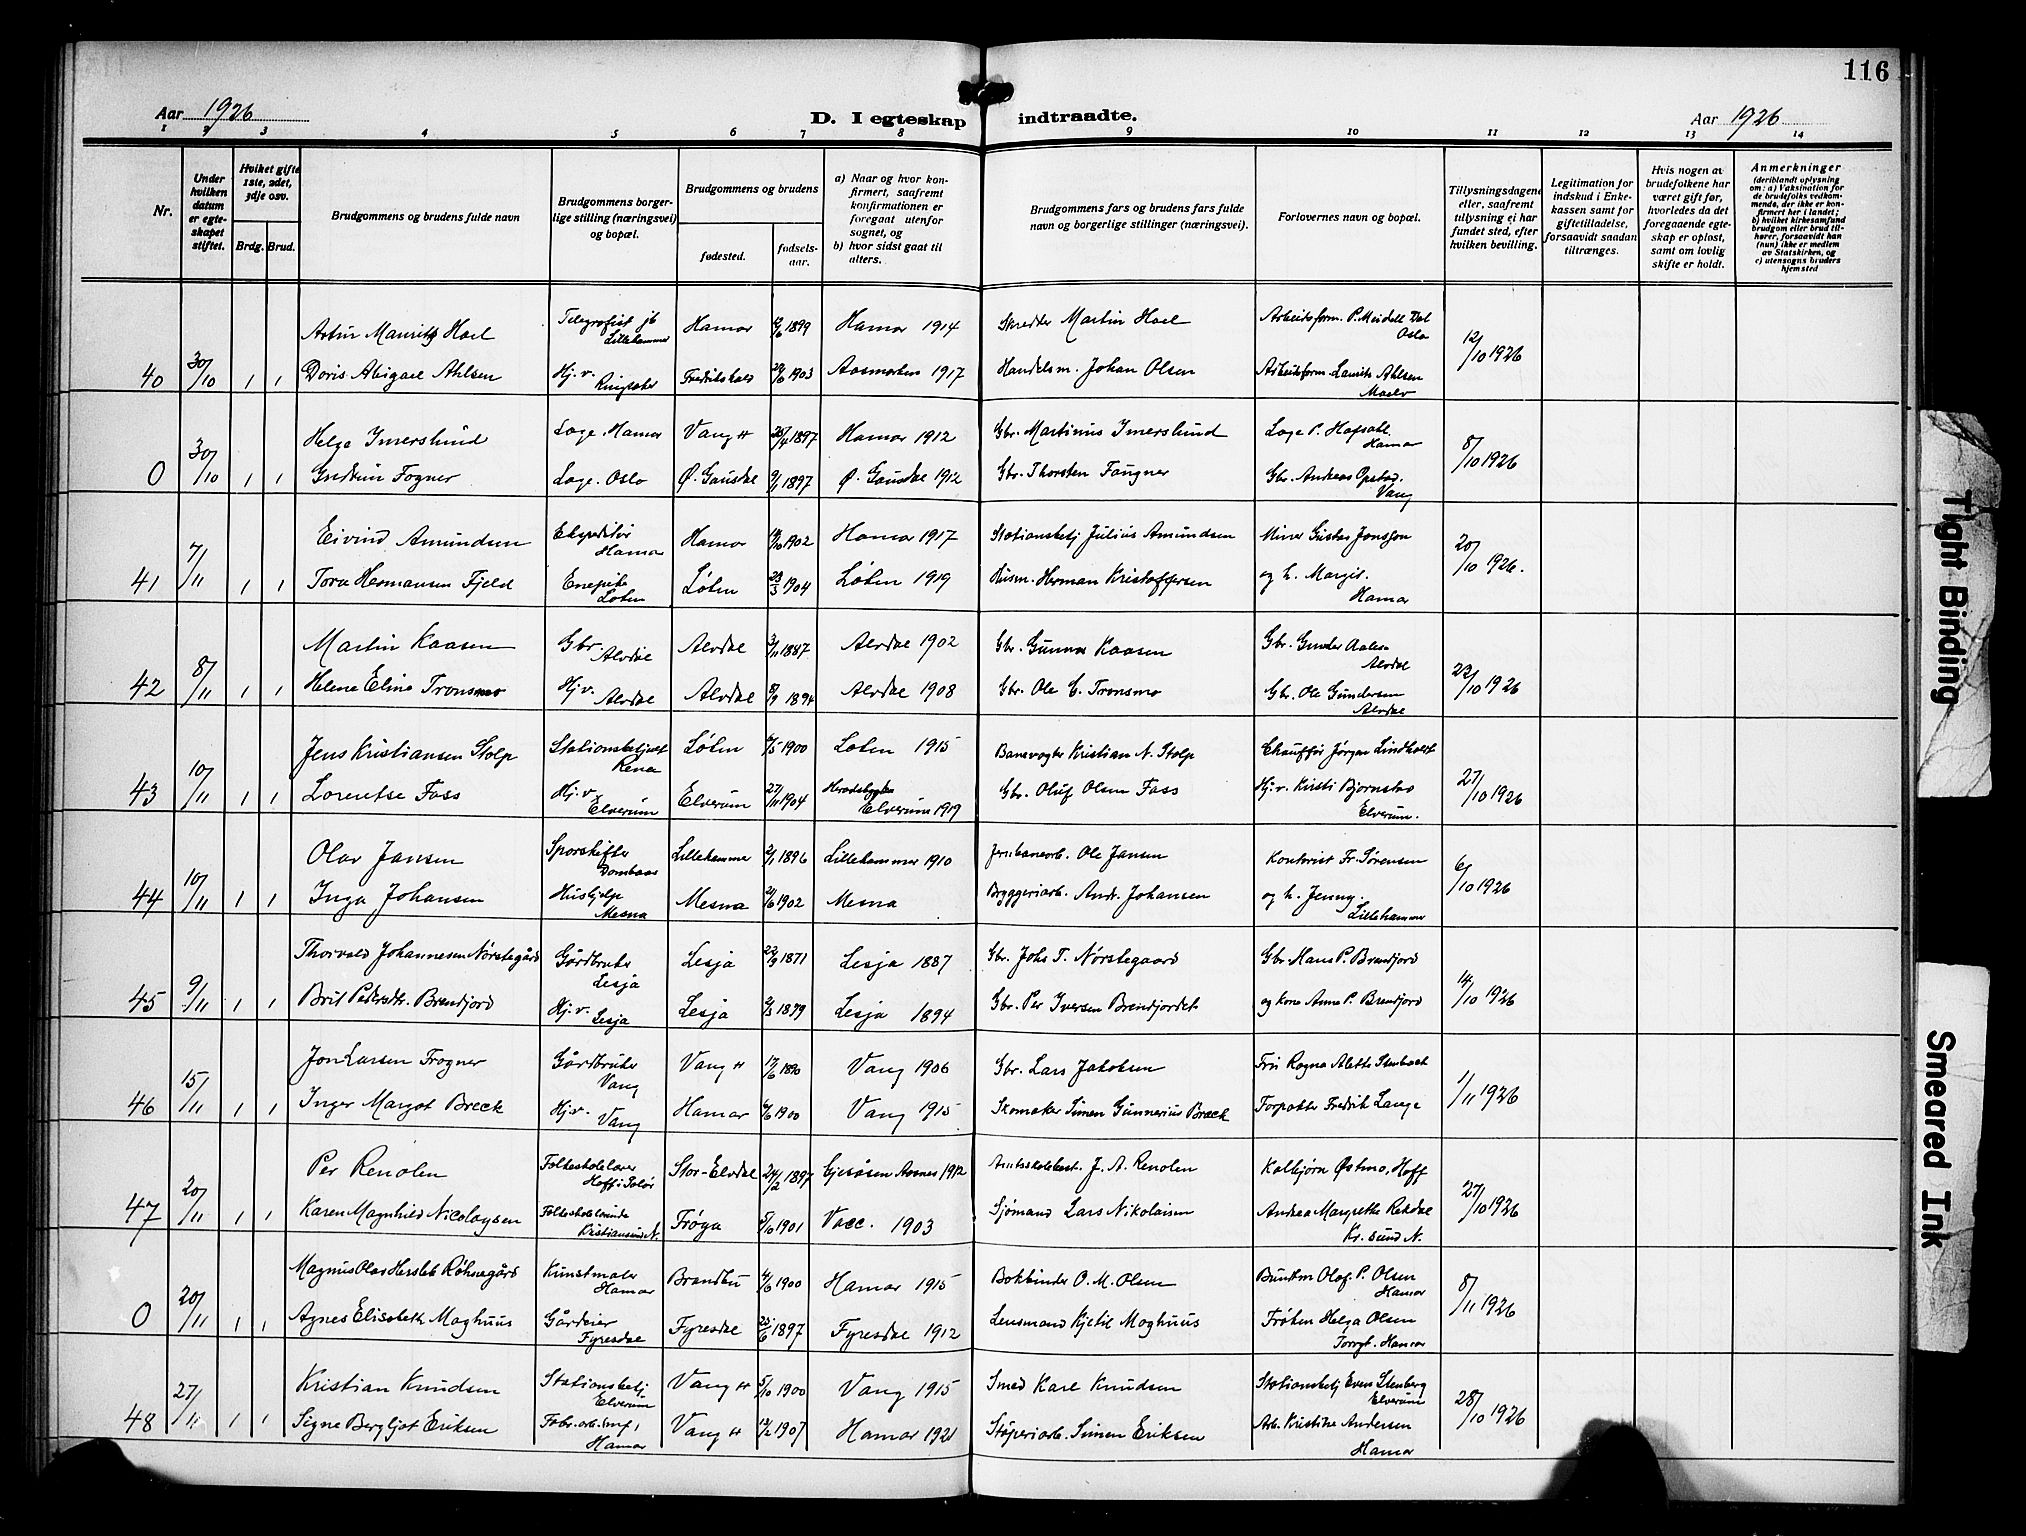 116
Aar 1926
D. I egteskap indtraadte.
Aar 1926
1 2 3 4 5 6 7 8 9 10 11 12 13 14
Nr.
Under hvilken datum er egteskapet stiftet.
Hvilket gifte 1ste, 2det, 3dje osv.
Brdg. Brud.
Brudgommens og brudens fulde navn
Brudgommens borgerlige stilling (næringsvei) og bopæl.
Brudgommens og brudens
fødested.
fødselsaar.
a) Naar og hvor konfirmert, saafremt konfirmationen er foregaat utenfor sognet, og
b) hvor sidst gaat til alters.
Brudgommens fars og brudens fars fulde navn og borgerlige stillinger (næringsvei).
Forlovernes navn og bopæl.
Tillysningsdagene eller, saafremt tillysning ei har fundet sted, efter hvilken bevilling.
Legitimation for indskud i Enkekassen samt for giftetilladelse, forsaavidt saadan tiltrænges.
Hvis nogen av brudefolkene har været gift før, hvorledes da det foregaaende egteskap er opløst, samt om lovlig skifte er holdt.
Anmerkninger
(deriblandt oplysning om: a) Vaksination for de brudefolks vedkommende, der ikke er konfirmert her i landet; b) hvilket kirkesamfund brudgom eller brud tilhører, forsaavidt han (hun) ikke er medlem av Statskirken, og c) utensogns bruders hjemsted
Artur Mauritz Hoel Telegrafist jb Lillehammer Hamar 1899 Hamar 1914 Skredder Martin Hoel Arbeidsform. P. Meidell Dal Oslo
40 30/10 1 1 Doris Abigael Ahlsen Hj.v. Ringsaker Fredrikshald 1903 Aasmarken 1917 Handelsm. Johan Olsen Arbeidsform. Laurits Ahlsen Maelv 12/10 1926
Helge Imerslund Læge. Hamar Vang H 1897 Hamar 1912 Gbr. Martinus Imerslund Læge P. Hofdahl Hamar
0 30/10 1 1 Gudrun Fogner Læge. Oslo Ø. Gausdal 1897 Ø. Gausdal 1912 Gbr. Thorsten Faugner Gbr. Andreas Opstad. Vang 8/10 1926
Eivind Amundsen Ekspeditør Hamar Hamar 1902 Hamar 1917 Stationsbetj Julius Amundsen Murer Gustav Jonsson
41 7/11 1 1 Tora Hermansen Fjeld Enepike Løten Løten 28/3 1904 Løten 1919 Husm. Herman Kristoffersen og h. Margit. Hamar 20/10 1926.
Martin Kaasen Gbr. Alvdal Alvdal 3/11 1887 Alvdal 1902 Gbr. Gunnar Kaasen Gbr. Gunder Aalen Alvdal
42 8/11 1 1 Helene Eline Tronsmo Hj.v. Alvdal Alvdal 8/9 1894 Alvdal 1908 Gbr. Ole E. Tronsmo Gbr. Ole Gundersen Alvdal 22/10 1926
Jens Kristiansen Stolp Stationsbetjent Rena Løten 1900 Løten 1915 Banevogter Kristian N. Stolp Chauffør Jørgen Lindholdt
43 10/11 1 1 Lorentse Fass Hj.v. Elverum Elverum 27/11 1904 Heradsbygden Elverum 1919 Gbr. Oluf Olsen Fass Hj.v. Kirsti Bjørnstad Elverum. 27/10 1926
Olav Jansen Sporskifter Dombaas Lillehammer 2/1 1896 Lillehammer 1910 Jernbanearb. Ole Jansen Kontorist Fr. Sørensen
44 10/11 1 1 Inga Johansen Hushjelp Mesna Mesna 1902 Mesna Bryggeriarb. Andr. Johansen og h. Jenny. Lillehammer 6/10 1926
Thorvald Johannesen Nørstegård Gårdbruker Lesja Lesja 22/9 1871 Lesja 1887 Gbr. Johs T. Nørstegaard Gbr. Hans P. Brendjord
45 9/11 1 1 Brit Pedersdtr. Brendjord Hj.v. Lesja Lesja 1879 Lesja 1894 Gbr. Per Iversen Brendjordet og kone Anne P. Brendjord 14/10 1926
Jon Larsen Frogner Gårdbruker Vang Vang H 17/6 1890 Vang 1906 Gbr. Lars Jakobsen Fru Ragna Alette Stenback
46 15/11 1 1 Inger Margot Breck Hj.v. Vang Hamar 1900 Vang 1915 Skomaker Simen Gunnerius Bræck Forpakter Fredrik Lange 1/11 1926
Per Renolen Folkeskolelærer Hoff i Solør Stor-Elvdal 24/2 1897 Gjesåsen Aasnes 1912 Amtsskolebest. J. A. Renolen Kolbjørn Østmo, Hoff
47 20/11 1 1 Karen Magnhild Nicolaysen Folkeskolelærerinde Kristiansund N. Frøya 5/10 1901 Vacc. 1903 Sjømand Lars Nikolaisen Andrea Margrethe Rekdal Kr. sund N. 27/10 1926
Magnus Olav Herslek Røhnegård Kunstmaler Hamar Brandbu 4/6 1900 Hamar 1915 Bokbinder O. M. Olsen Buntm Olaf P. Olsen Hamar
0 20/11 1 1 Agnes Elisabeth Moghuus Gårdeier Fyresdal Fyresdal 25/6 1897 Fyresdal 1912 Lensmand Kjetil Moghuus Frøken Helga Olsen Torvgt. Hamar 8/11 1926
Kristian Knudsen Stationsbetj. Elverum Vang H 5/10 1900 Vang 1915 Smed Karl Knudsen Stationsbetj Even Stenberg Elverum
48 27/11 1 1 Signe Bergljot Eriksen Fabr.arb.smf, Hamar Vang H 12/2 1907 Hamar 1921 Støperiarb. Simen Eriksen Arb. Kristine Andersen Hamar 28/10 1926
Tight Binding
Smeared Ink